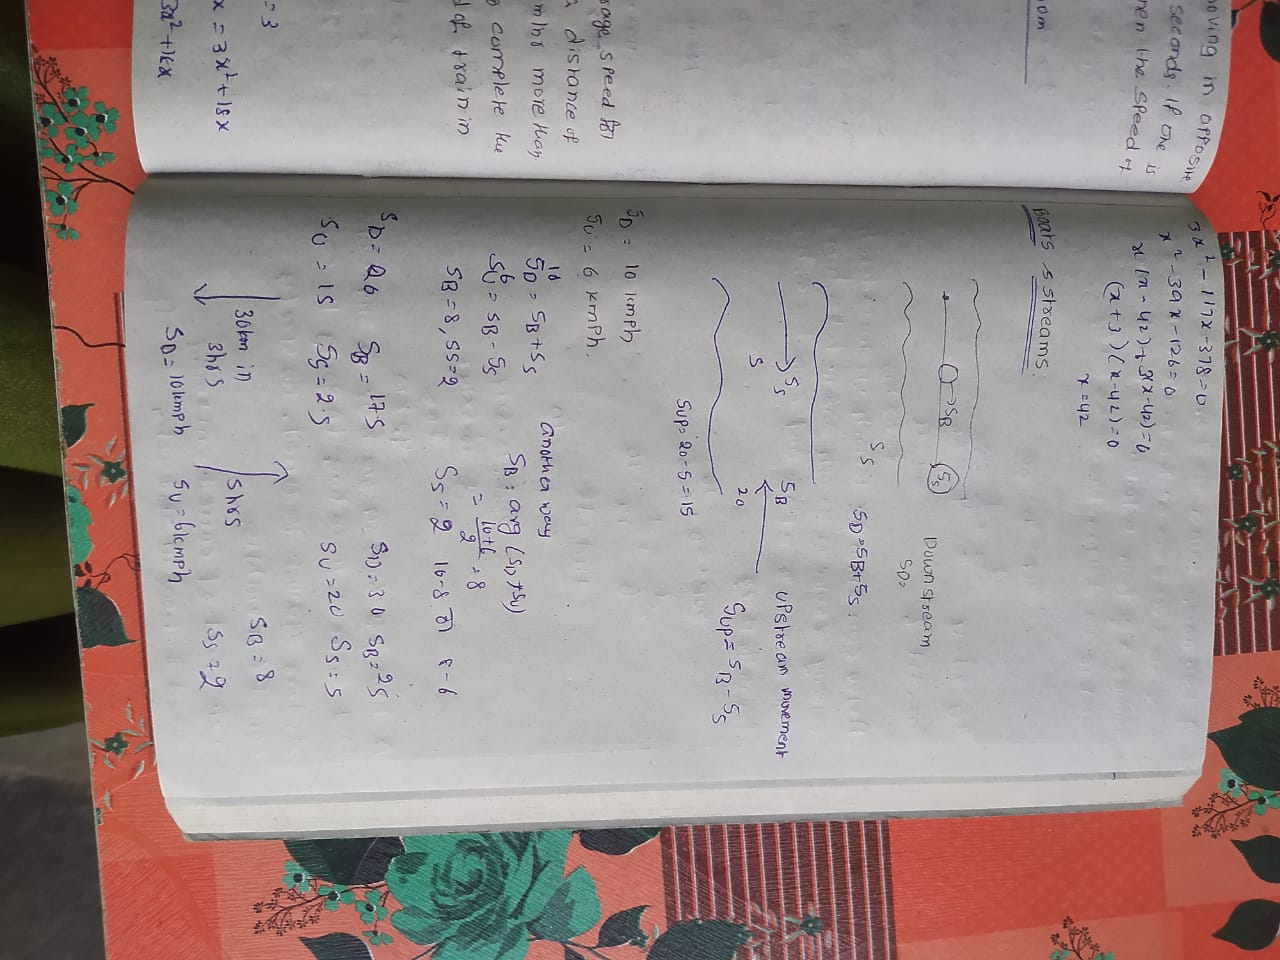 oving in opposite
seconds. If one is
hen the speed of
nom
rage speed for
a distance of
m/hr more than
o complete the
d of train in
= 3
x = 3x² + 18x
3x² - 117x - 378 = 0
x² - 39x - 126 = 0
(x + 3) (x - 42) = 0
x = 42
Boats & Streams:
SB
Ss
Down stream
SD =
Ss
SD = SB + Ss
Ss
S
SB
20
upstream movement
Sup = SB - Ss
Sup = 20 - 5 = 15
SD = 10 kmph
SU = 6 kmph.
10
SD = SB + Ss
6
SU = SB - Ss
SB = 8, SS = 2
another way
SB = avg (SD + SU)
= 8
Ss = 2
SB = 17.5
SU = 15 Ss = 2.5
SD = 30 SB = 25
SU = 20 Ss = 5
30km in
3hrs
SD = 10kmph
5hrs
SU = 6kmph
SB = 8
Ss = 2